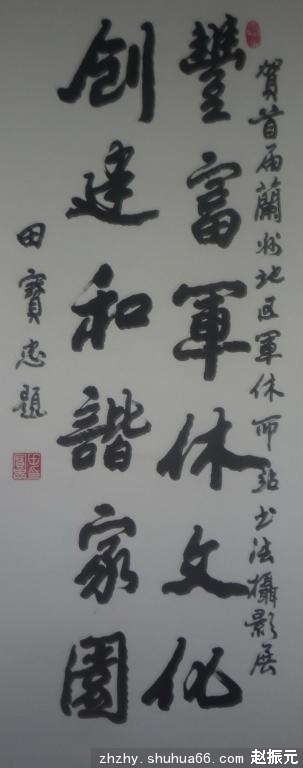 賀首届蘭州地区軍休所站书法攝影展
豐富軍休文化
創建和諧家園
田寶忠題
zhzhy.shuhua66.com 赵振元